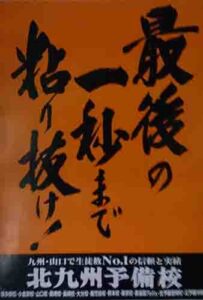 最後の
一秒まで
粘り抜け!
九州・山口で生徒数No.1の信頼と実績
北九州予備校